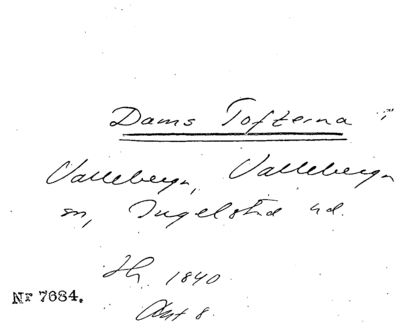 Dams Tofterna i
Valleberga, Valleberga
sn, Ingelstad hd.
Jh. 1840
Akt 8.
Nr 7684.